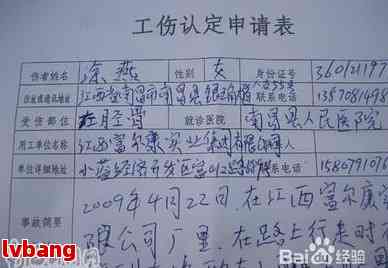 工伤认定申请表
伤者姓名 涂燕 性别 女 身份证号 360121197
住址或通讯地址 江西省南昌市南昌县 联系电话 1357081498
受伤部位 左胫骨 就诊医院 南昌县人民医院
用工单位名称 江西富尔康实业集团有限公司
单位详细地址 小蓝经济开发区富山 路 联系电话 1580791016
事故简要 2009年4月22日,在江西富尔康实
限公司厂里,在路上行走时
lvbang
Bai 百度经验